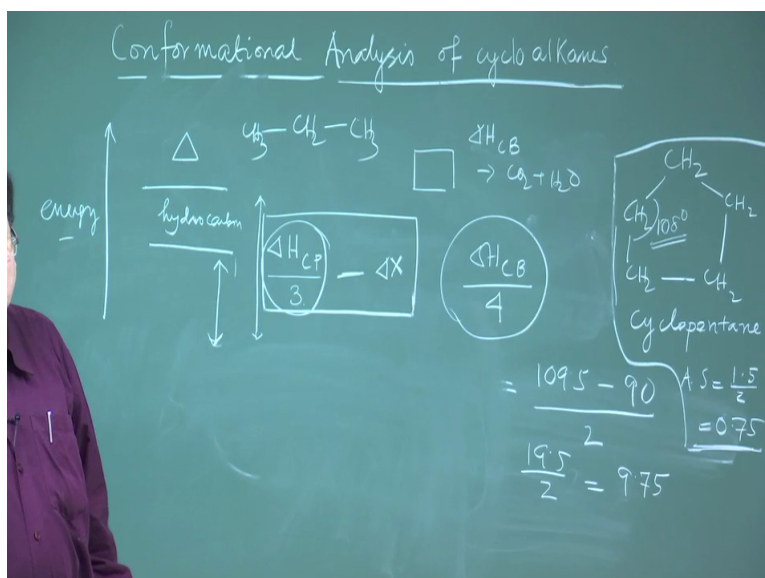 Conformational Analysis of cycloalkanes
energy
△
CH3—CH2—CH3
hydrocarbon
ΔH_CP / 3 — ΔX
□
ΔH_CB
→ CO2 + H2O
ΔH_CB / 4
CH2
CH2 108° CH2
CH2 — CH2
Cyclopentane
A.S = 1.5 / 2
= 0.75
= 109.5 – 90 / 2
19.5 / 2 = 9.75